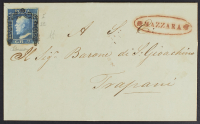 MAZZARA
A S.
Il Sig. Barone di S. Gioachino
Trapani